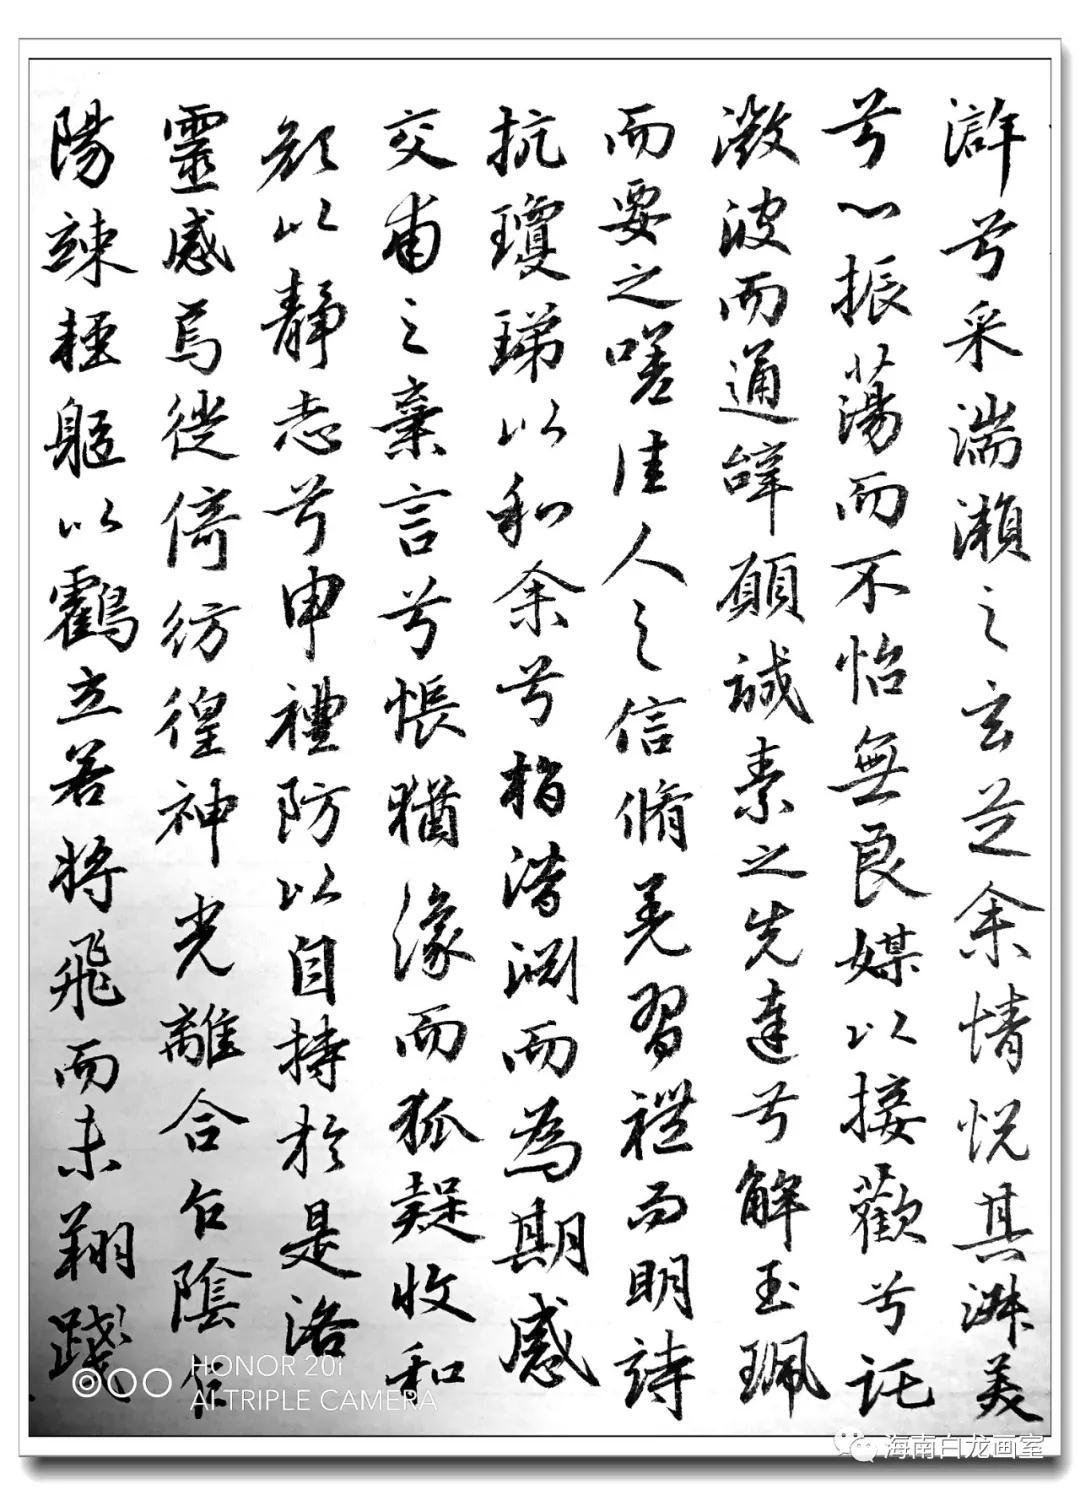 滸兮采湍瀨之玄芝余情悅其淑美
兮心振蕩而不怡無良媒以接歡兮託
激波而通辝願誠素之先達兮解玉珮
而要之嗟佳人之信脩羌習禮而明詩
抗瓊珶以和余兮指潛淵而為期感
交甫之棄言兮悵猶緣而狐疑收和
顏以靜志兮申禮防以自持於是洛
靈感焉徙倚彷徨神光離合乍陰乍
陽竦極軀以鸖立若將飛而未翔踐
HONOR 20i
AI TRIPLE CAMERA
海南白龙画室